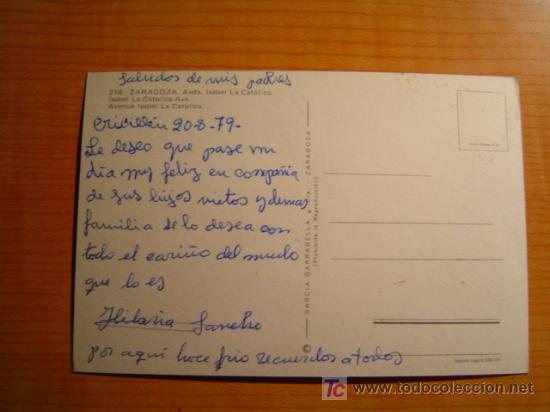 Saludos de mis padres
218 - ZARAGOZA. Avda. Isabel La Católica.
Isabel La Catolica Ave.
Avenue Isabel La Catolica.
20-8-79-
Le deseo que pase un
dia muy feliz en compañia
de sus hijos nietos y demas
familia se lo desea con
todo el cariño del mundo
que lo es
Hilaria Sancho
por aqui hace frio recuerdos a todos
GARCIA GARRABELLA y Cía. - ZARAGOZA
(Prohibida la Reproducción)
todocoleccion
TC
www.todocoleccion.net